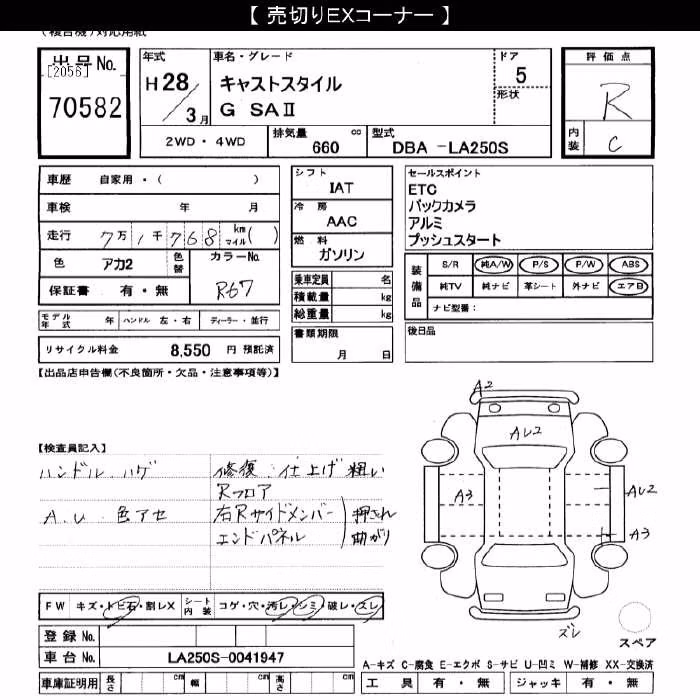 【 売切りEXコーナー 】
(複合機)対応用紙
出品No.
[2056]
70582
年式
H28
3月
車名・グレード
キャストスタイル
G SAⅡ
ドア
5
形状
評価点
R
内装
C
2WD・4WD
排気量 cc
660
型式
DBA -LA250S
車歴 自家用・( )
車検 年 月
走行 7万1千768 km マイル( )
色 アカ2 色替
カラーNo.
R67
保証書 有・無
シフト
IAT
冷房
AAC
燃料
ガソリン
セールスポイント
ETC
バックカメラ
アルミ
プッシュスタート
装備品
S/R 純A/W P/S P/W ABS
純TV 純ナビ 革シート 外ナビ エアB
ナビ型番:
乗車定員 名
積載量 kg
総重量 kg
モデル年式 年 ハンドル 左・右 ディーラー・並行
リサイクル料金 8,550 円 預託済
書類期限
月 日
後日品
【出品店申告欄(不良箇所・欠品・注意事項等)】
【検査員記入】
ハンドル ハゲ
A.U. 色アセ
修復 仕上げ粗い
Rフロア
右Rサイドメンバー
エンドパネル
押され
曲がり
A2
AU2
A3
AU2
A3
ズレ
スペア
FW キズ・トビ石・割レX
シート内装 コゲ・穴・汚レ・シミ・破レ・ズレ
登録No.
車台No. LA250S-0041947
車庫証明用 長さ cm 幅 cm 高さ cm
A-キズ C-腐食 E-エクボ S-サビ U-凹ミ W-補修 XX-交換済
工具 有・無 ジャッキ 有・無